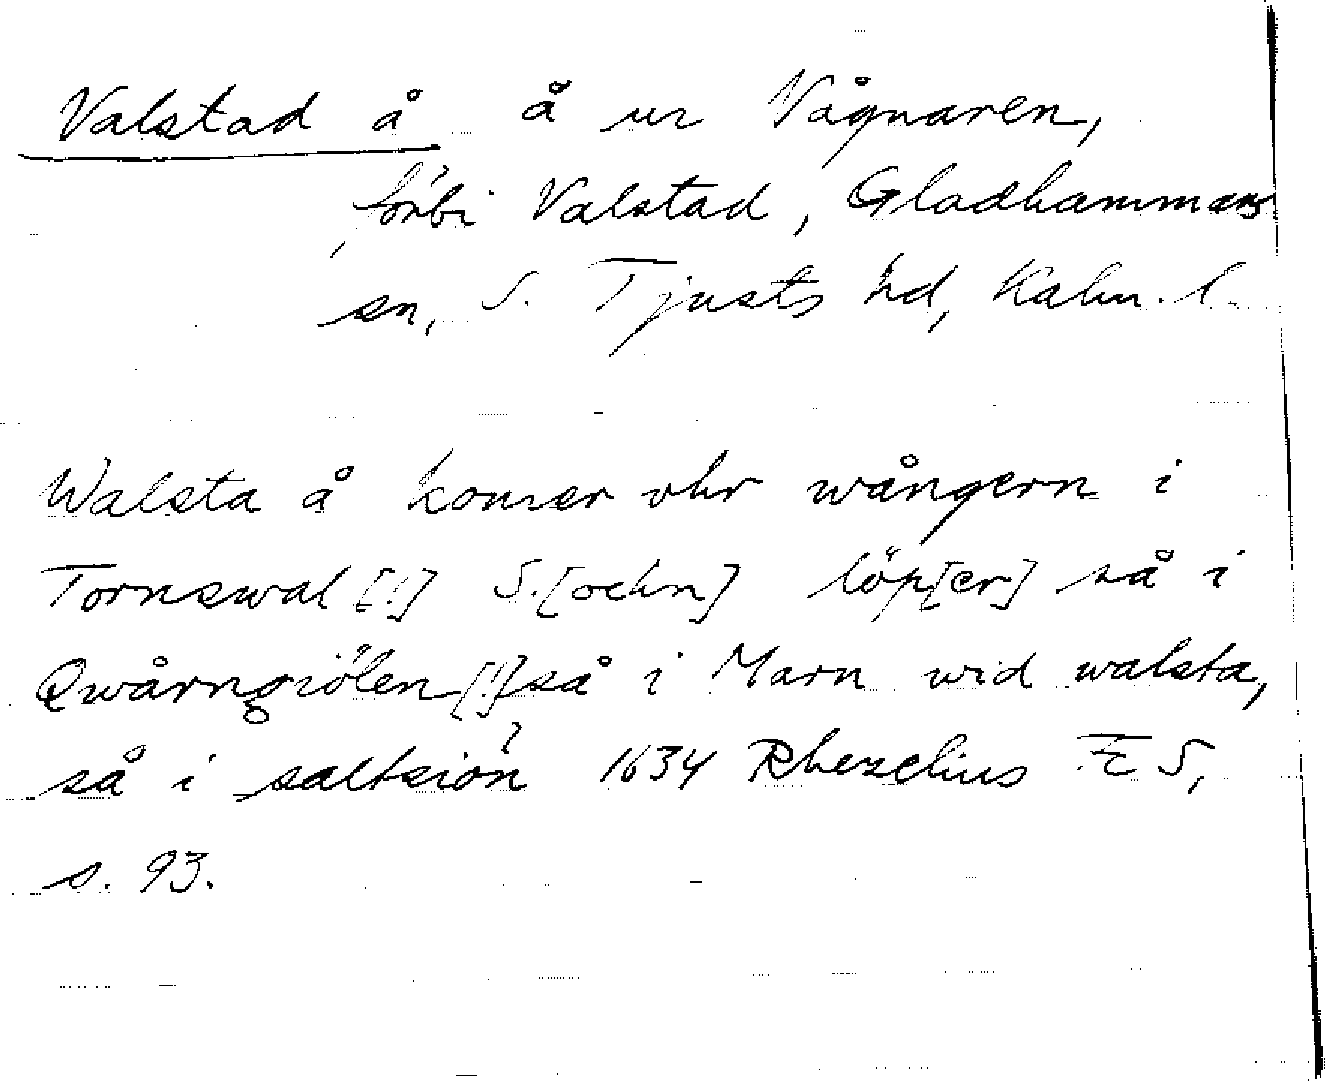 Valstad å å ur Vågnaren,
förbi Valstad, Gladhammars
sn, S. Tjusts hd, Kalm. l.
Walsta å komer vhr wångern i
Tornswal [!] S.[ochn] löp[er] så i
Qwårngiölen [!] så i Marn wid walsta,
så i saltsiön 1634 Rhezelius F S,
s. 93.